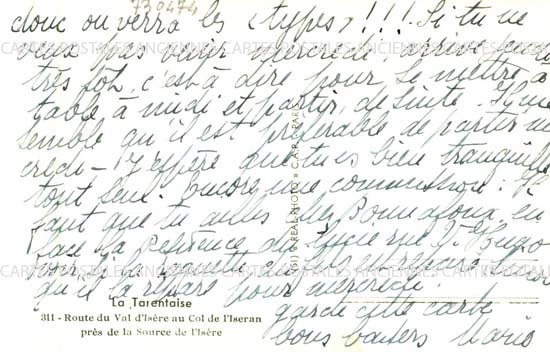 730474
donc on verra les "types" !!! Si tu ne
veux pas venir mercredi, arrive
très tôt, c'est à dire pour se mettre à
table à midi et partir de suite.
semble qu'il est préférable de partir
credi - J'espère que tu es bien tranquille
tout seul. Encore une commission: Il
faut que tu ailles chez Bonnafoux, en
face la du lycée rue V. Hugo
voir si la est
qu'il la répare pour mercredi.
garde cette carte
bons baisers
La Tarentaise
311 - Route du Val d'Isère au Col de l'Iseran
près de la Source de l'Isère
RÉAL-PHOTO » C.A.P. PARIS
CARTES POSTALES ANCIENNES